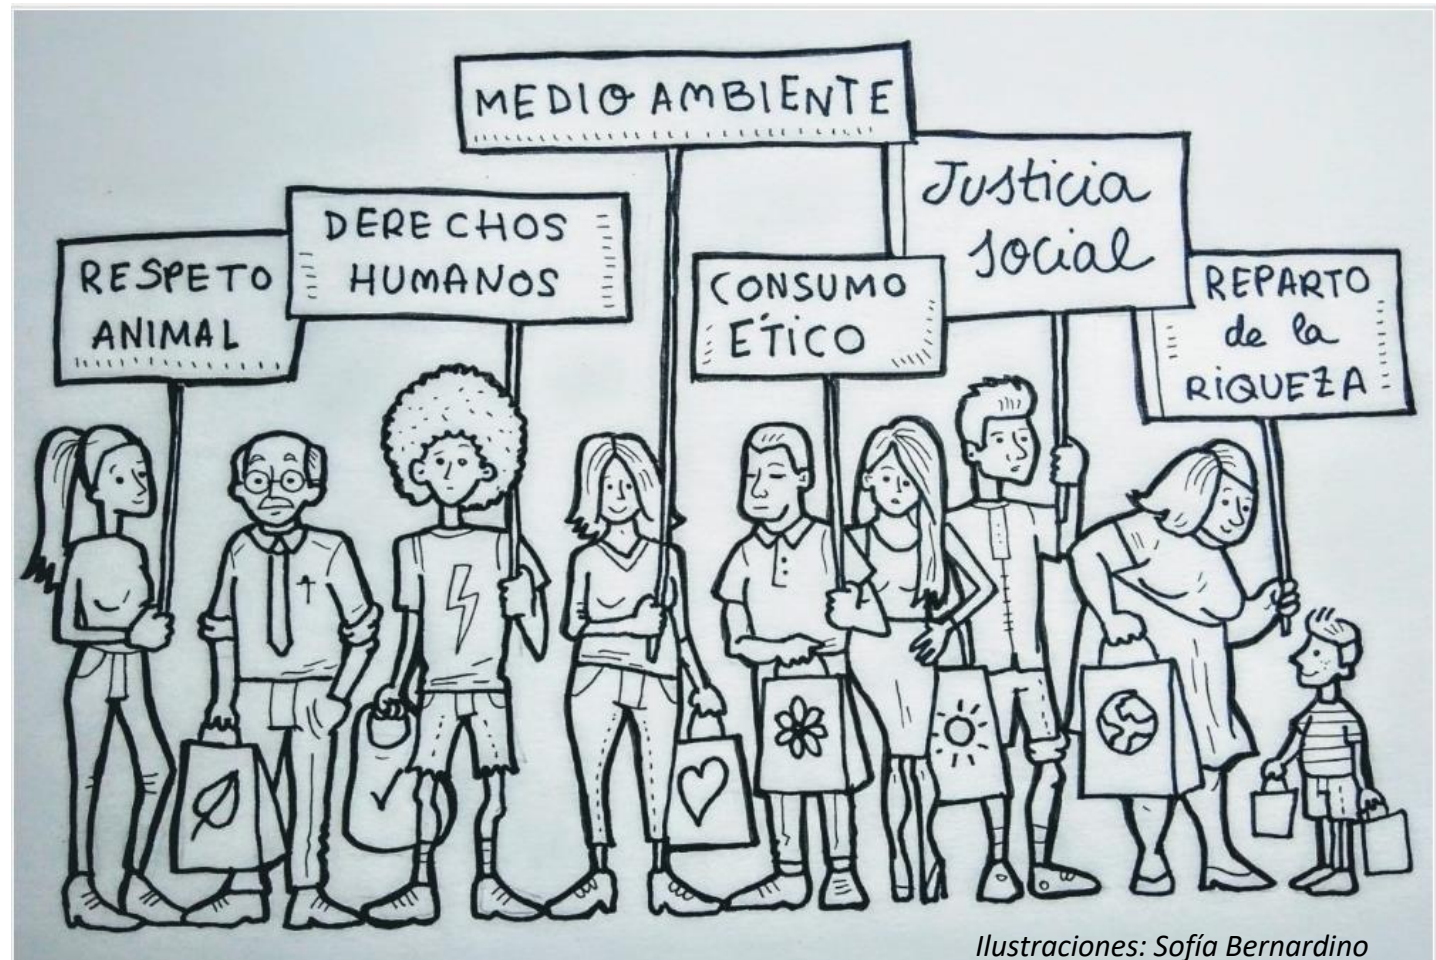 MEDIO AMBIENTE
DERECHOS
HUMANOS
RESPETO
ANIMAL
CONSUMO
ÉTICO
Justicia
social
REPARTO
de la
RIQUEZA
Ilustraciones: Sofía Bernardino